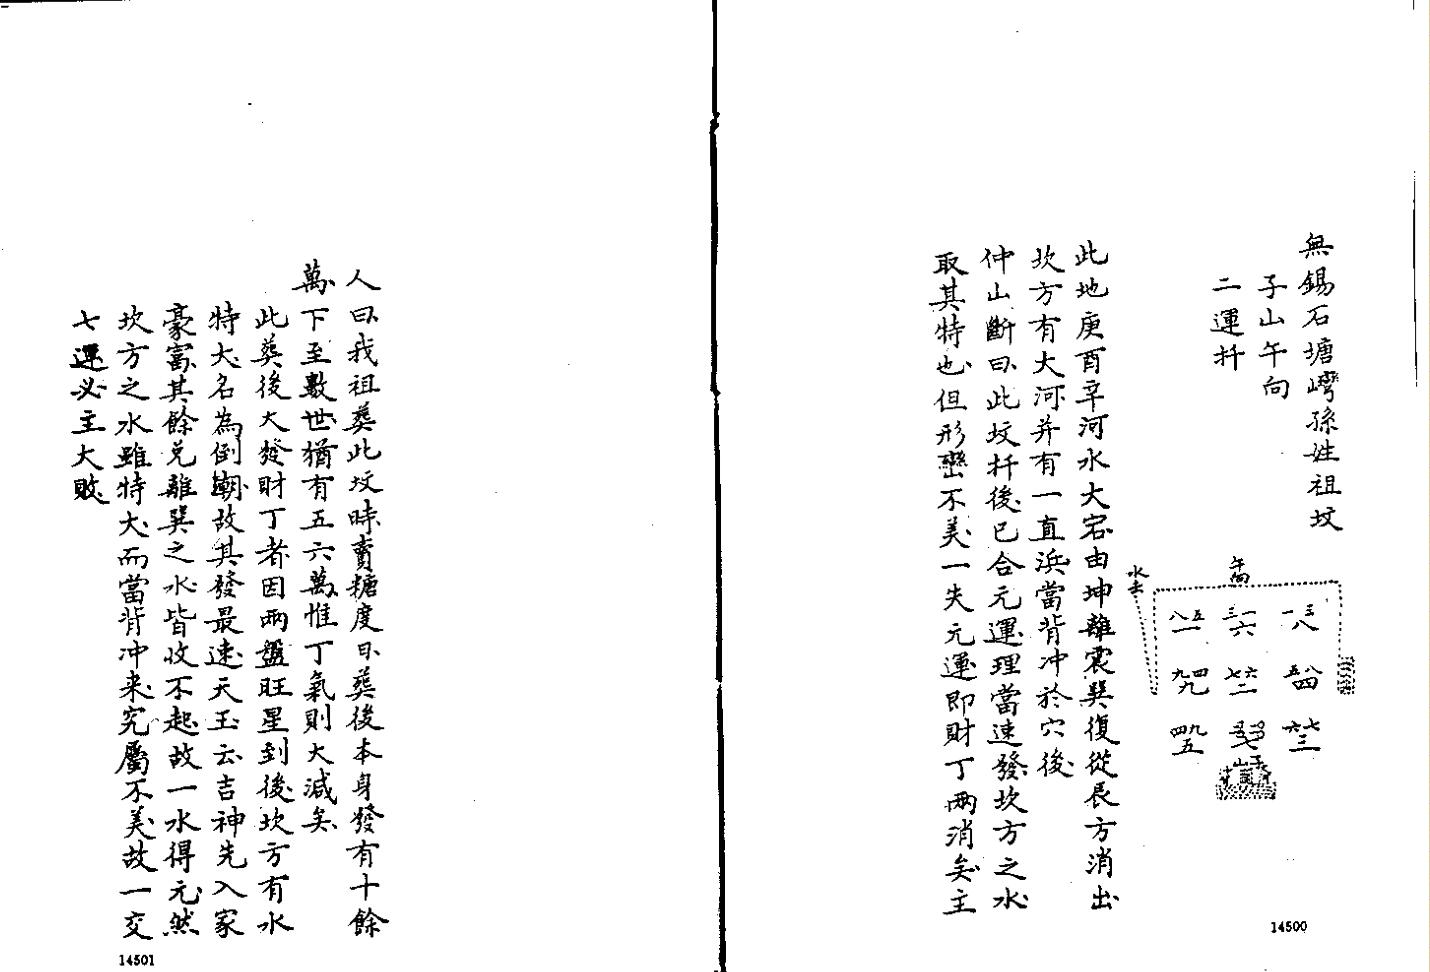 無錫石塘灣孫姓祖坟
子山午向
二運扦
午向
水去
八五 三一 一三
一 六 八
九四 七六 五八
九 二 四
四九 二二 六七
五 七 三
子山
此地庚酉辛河水大宕由坤離震巽復從辰方消出
坎方有大河并有一直浜當背冲於穴後
仲山斷曰此坟扦後已合元運理當速發坎方之水
取其特也但形巒不美一失元運即財丁兩消矣主
14500
人曰我祖葬此坟時賣糖度日葬後本身發有十餘
萬下至數世猶有五六萬惟丁氣則大減矣
此葬後大發財丁者因兩盤旺星到後坎方有水
特大名為倒潮故其發最速天玉云吉神先入家
豪富其餘兌離巽之水皆收不起故一水得元然
坎方之水雖特大而當背冲來究屬不美故一交
七運必主大敗
14501